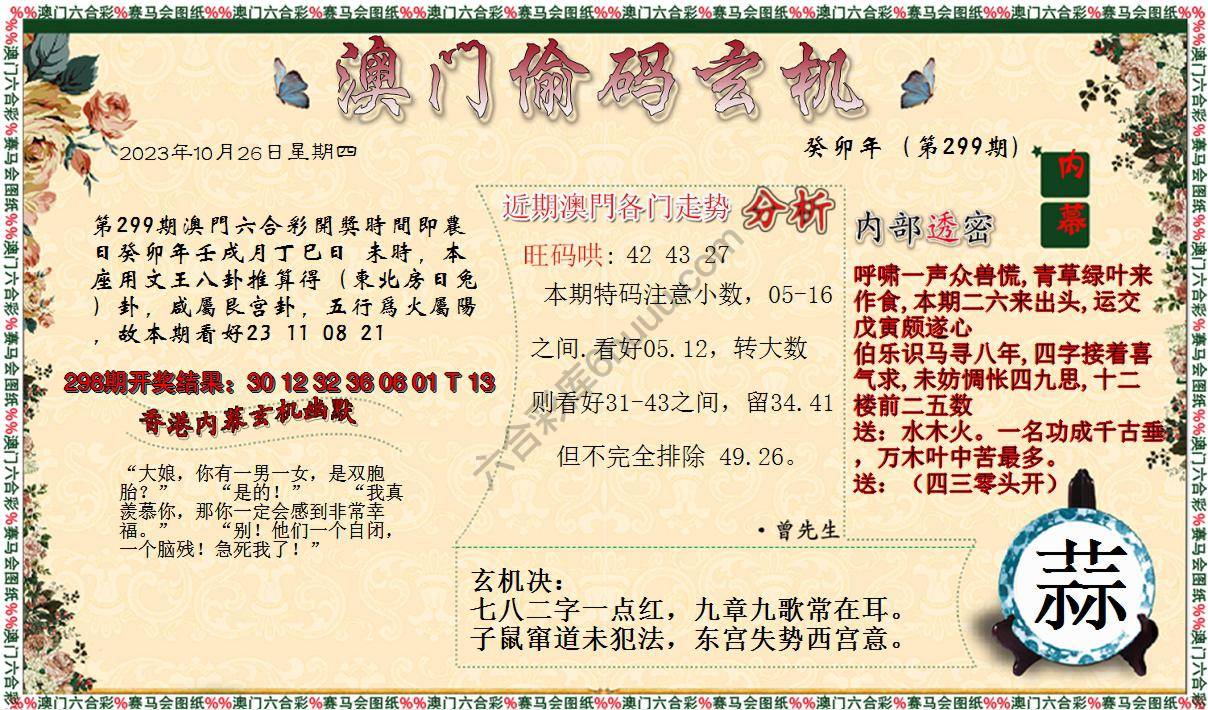 %%澳门六合彩%赛马会图纸%%澳门六合彩%赛马会图纸%%澳门六合彩%赛马会图纸%%澳门六合彩%赛马会图纸%%澳门六合彩%赛马会图纸%%澳门六合彩%赛马会图纸%%
澳门偷码玄机
2023年10月26日星期四
癸卯年（第299期）
内幕
第299期澳門六合彩開獎時間即農
日癸卯年壬戌月丁巳日 未時，本
座用文王八卦推算得（東北房日兔
）卦，咸屬艮宫卦，五行爲火屬陽
，故本期看好23 11 08 21
298期开奖结果：30 12 32 36 06 01 T 13
香港内幕玄机幽默
“大娘，你有一男一女，是双胞
胎？” “是的！” “我真
羡慕你，那你一定会感到非常幸
福。” “别！他们一个自闭，
一个脑残！急死我了！”
近期澳門各门走势 分析
旺码哄: 42 43 27
本期特码注意小数，05-16
之间.看好05.12，转大数
则看好31-43之间，留34.41
但不完全排除 49.26。
·曾先生
内部透密
呼啸一声众兽慌,青草绿叶来
作食,本期二六来出头,运交
戊寅颇遂心
伯乐识马寻八年,四字接着喜
气求,未妨惆怅四九思,十二
楼前二五数
送：水木火。一名功成千古垂
，万木叶中苦最多。
送：（四三零头开）
玄机决：
七八二字一点红，九章九歌常在耳。
子鼠窜道未犯法，东宫失势西宫意。
蒜
%%澳门六合彩%赛马会图纸%%澳门六合彩%赛马会图纸%%澳门六合彩%赛马会图纸%%澳门六合彩%赛马会图纸%%澳门六合彩%赛马会图纸%%澳门六合彩%赛马会图纸%%